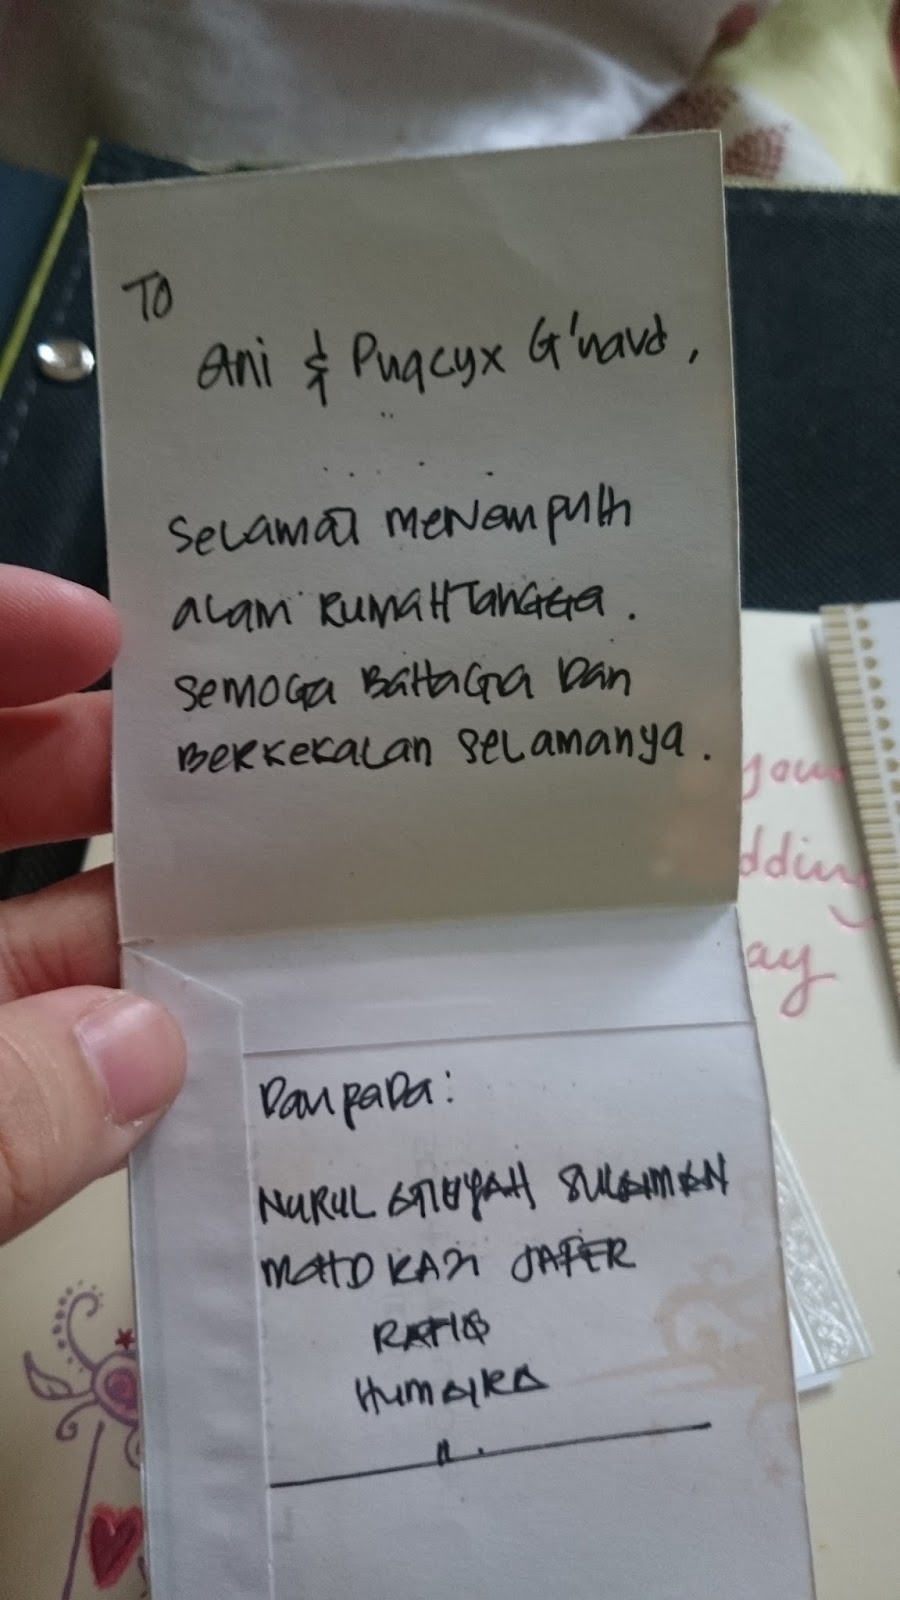 TO
Ani & Puqcyx G'navd,
Selamat menempuh
alam Rumahtangga.
Semoga Bahagia Dan
Berkekalan selamanya.
your
dding
ay
Daripada:
NURUL ATIQYAH SULAIMAN
MOHD KAZI JAFER
RAFIQ
HUMAIRA